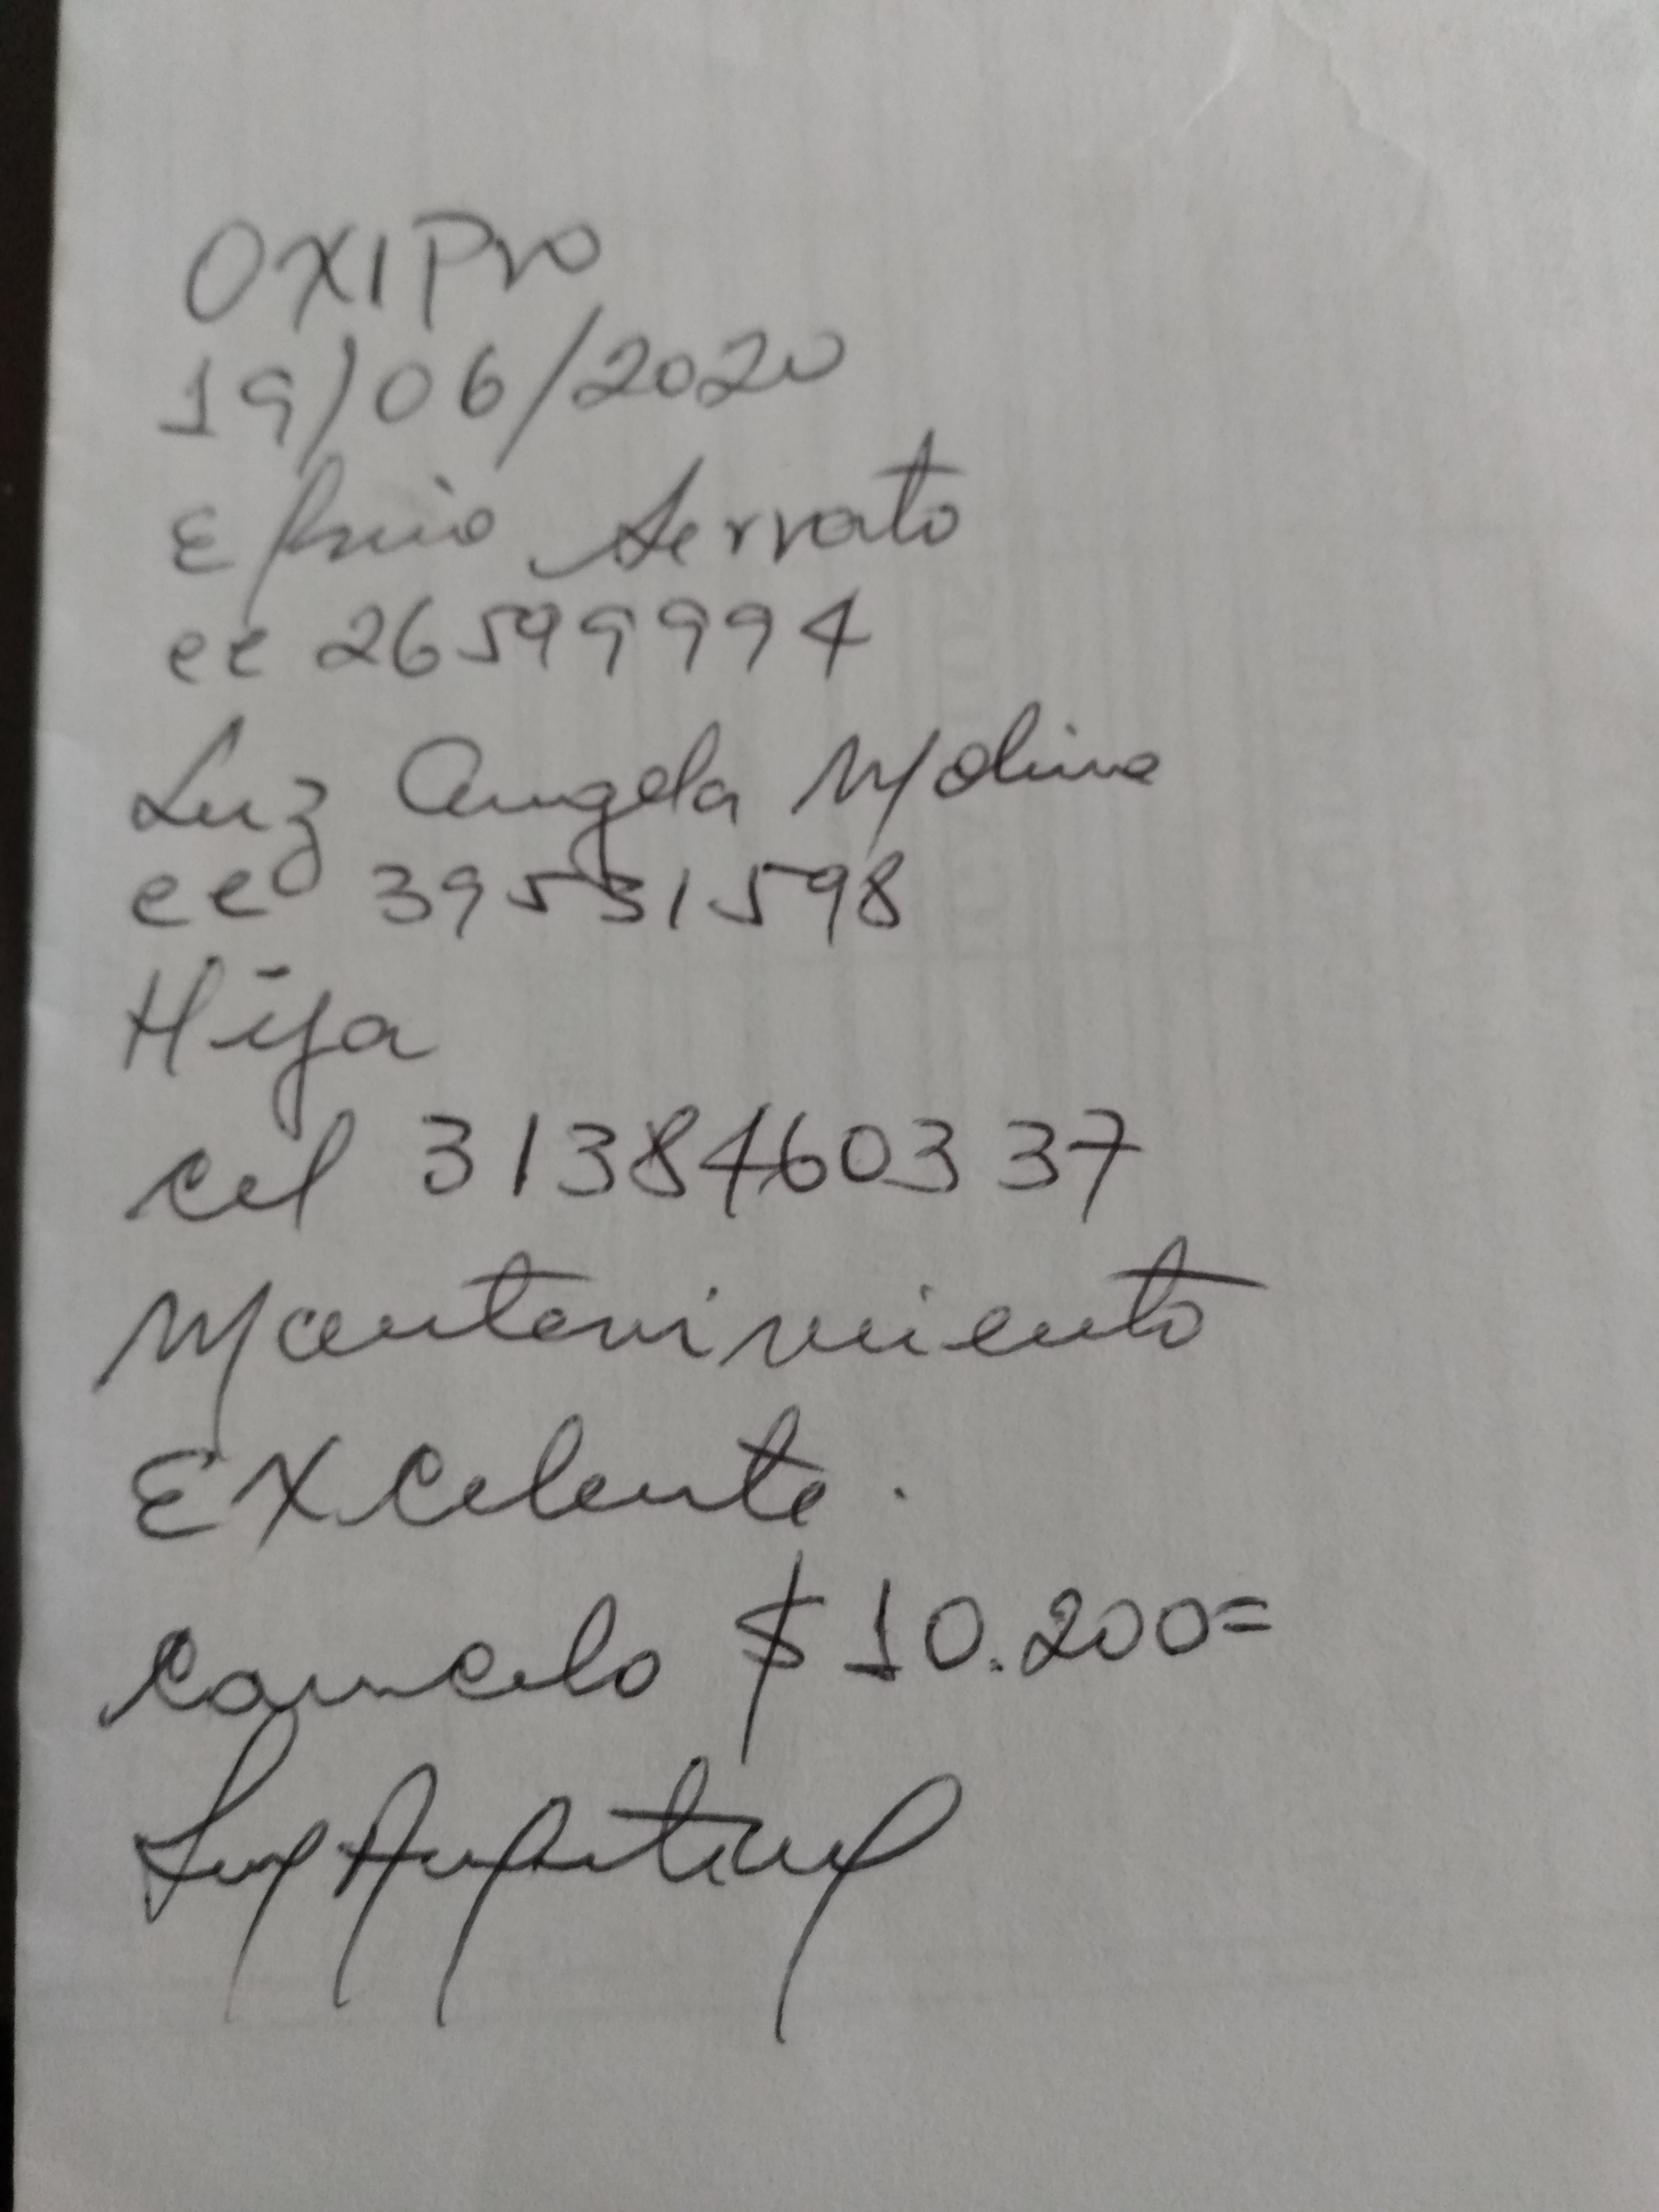 OXIPro
19/06/2020
Serrato
cc 26599994
Luz Angela Molina
cc 39531598
Hija
cel 3138460337
Mantenimiento
Excelente.
cancelo $10.200=